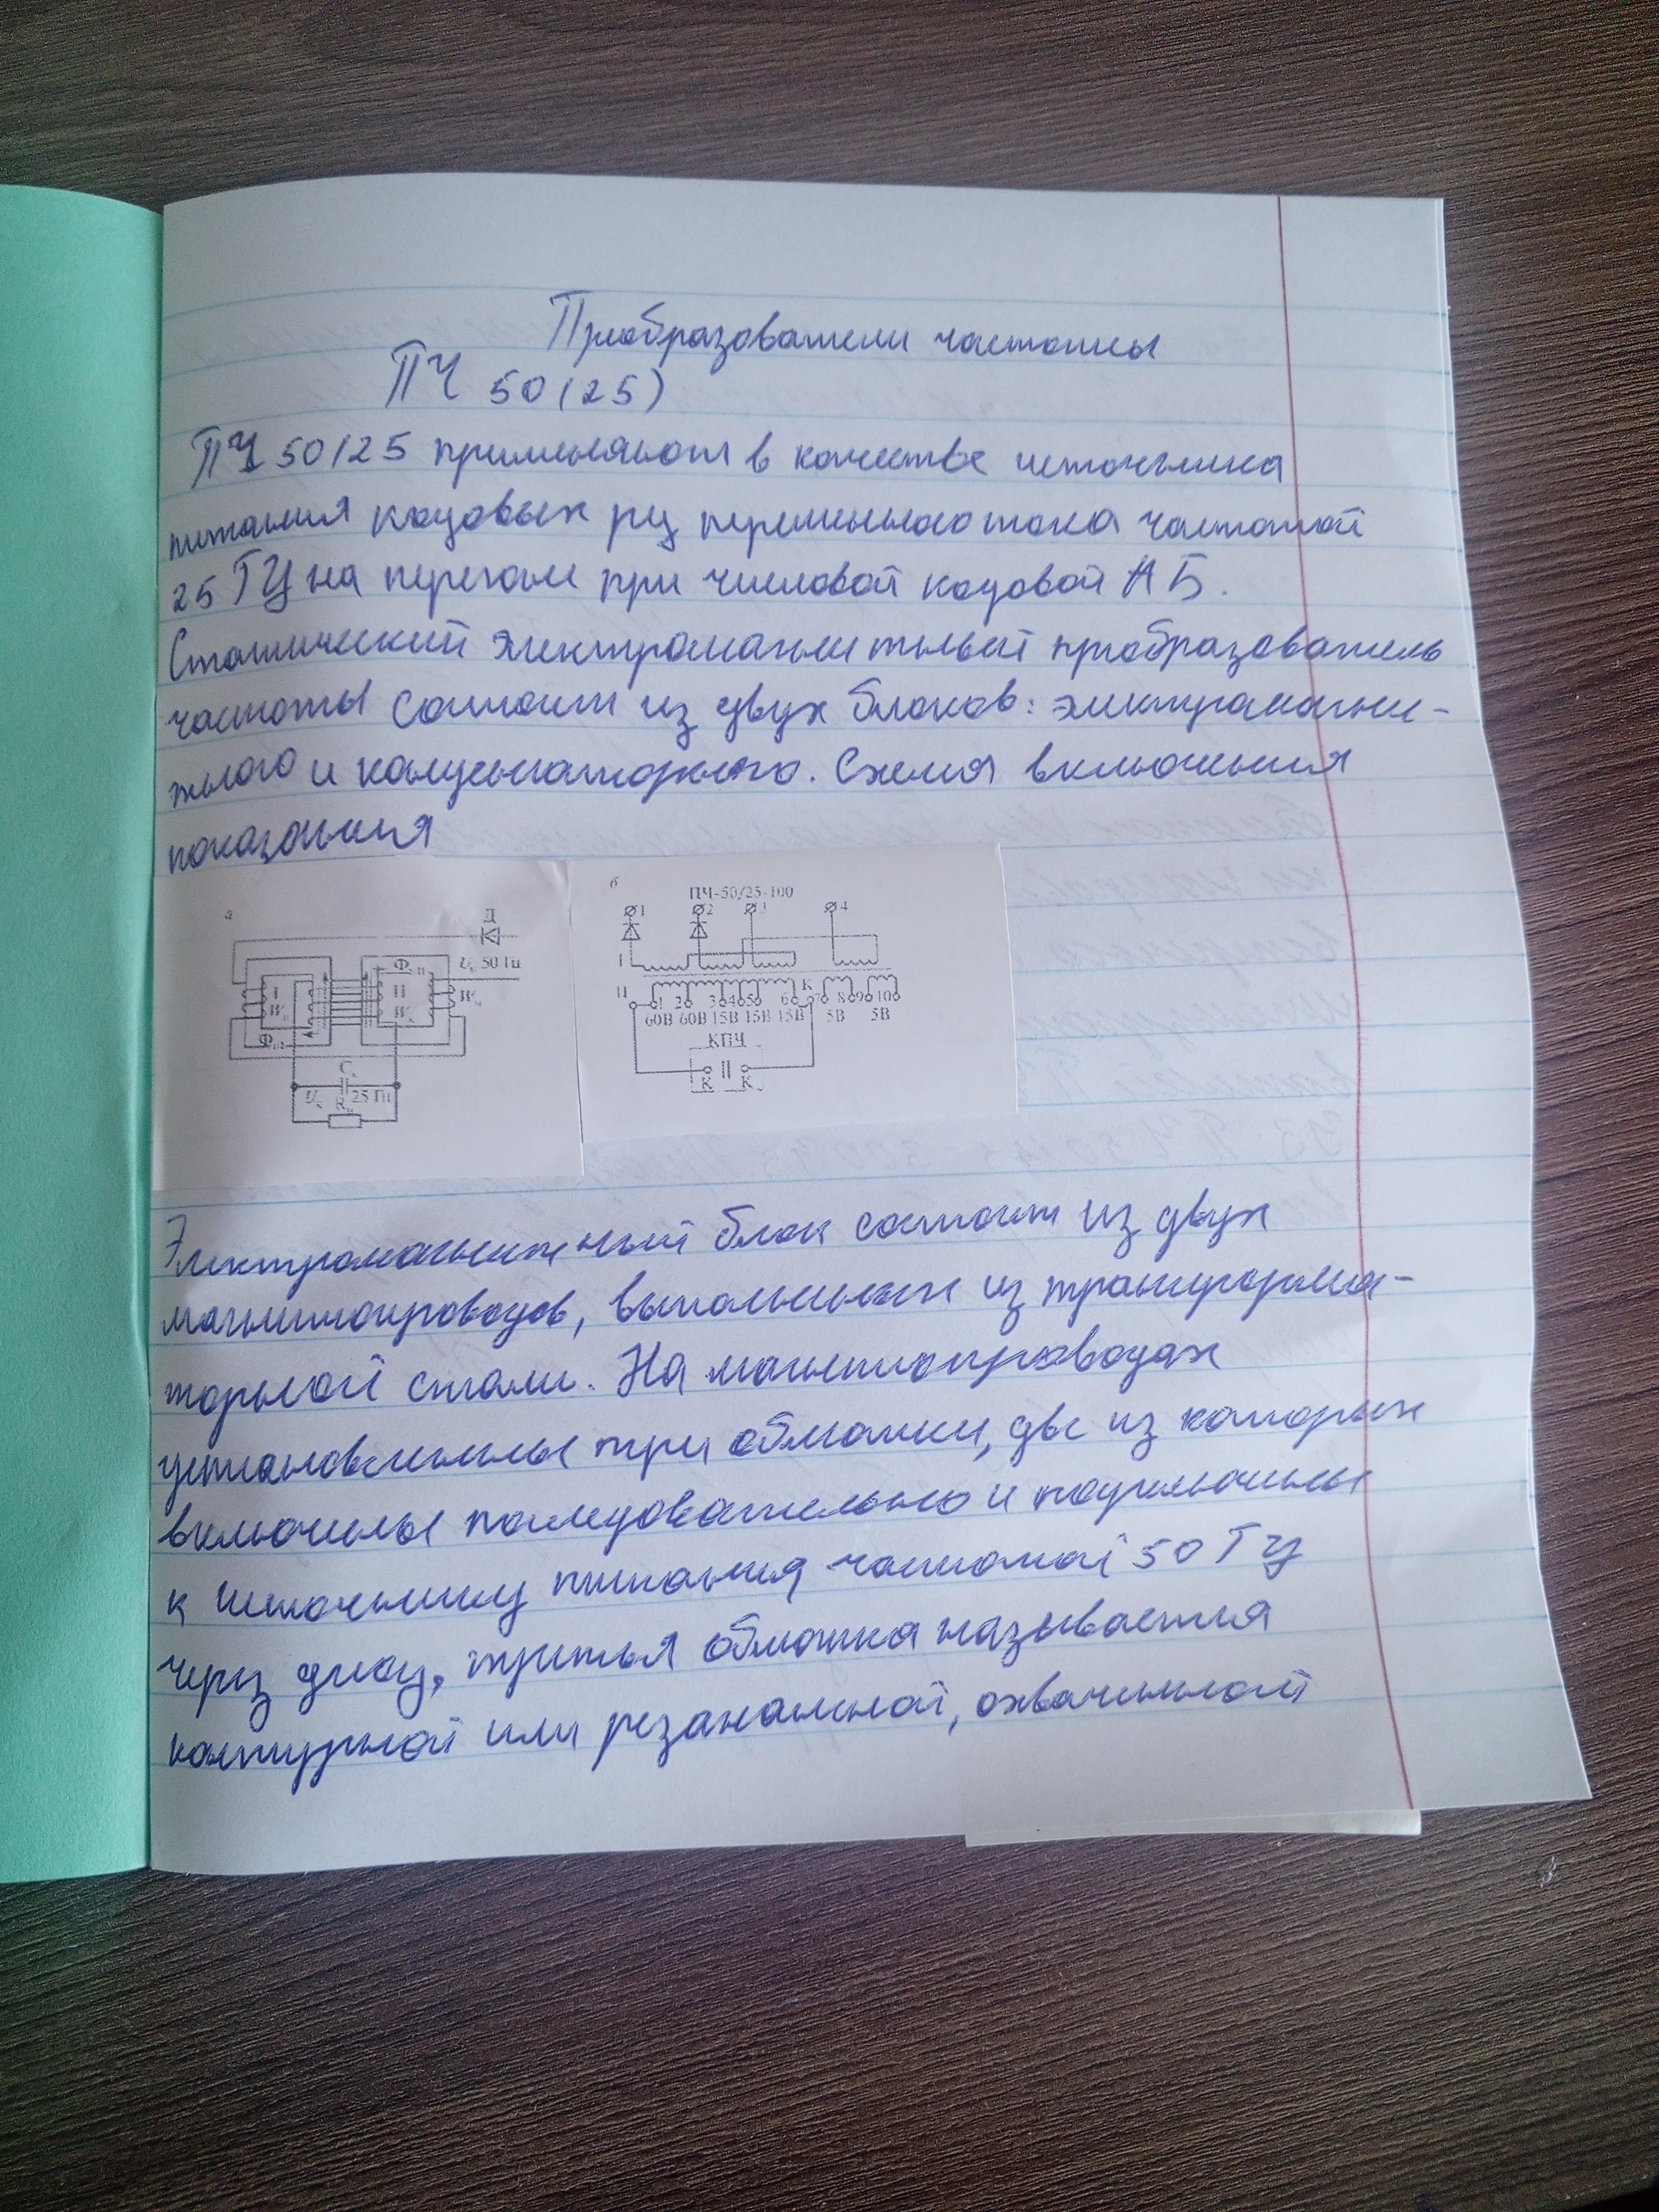 Преобразователи частоты
ПЧ 50(25)
ПЧ 50/25 применяют в качестве источника
питания кодовых рц переменного тока частотой
25 ГЦ на перегоне при числовой кодовой АБ.
Статический электромагнитный преобразователь
частоты состоит из двух блоков: электромагни-
тного и конденсаторного. Схема включения
показания
а
Д
Uс 50 Гц
Фп1
I
II
Wк
Wк
Wп
Фп2
Cк
Uк 25 Гц
Rн
б
ПЧ-50/25-100
1 2 3 4
I
II 1 2 3 4 5 6 К 7 8 9 10
60В 60В 15В 15В 15В 5В 5В
КПЧ
К К
Электромагнитный блок состоит из двух
магнитопроводов, выполненных из трансформа-
торной стали. На магнитопроводах
установленны три обмотки, две из которых
включены последовательно и подключены
к источнику питания частотой 50 ГЦ
через диод, третья обмотка называется
контурной или резонансной, охваченной